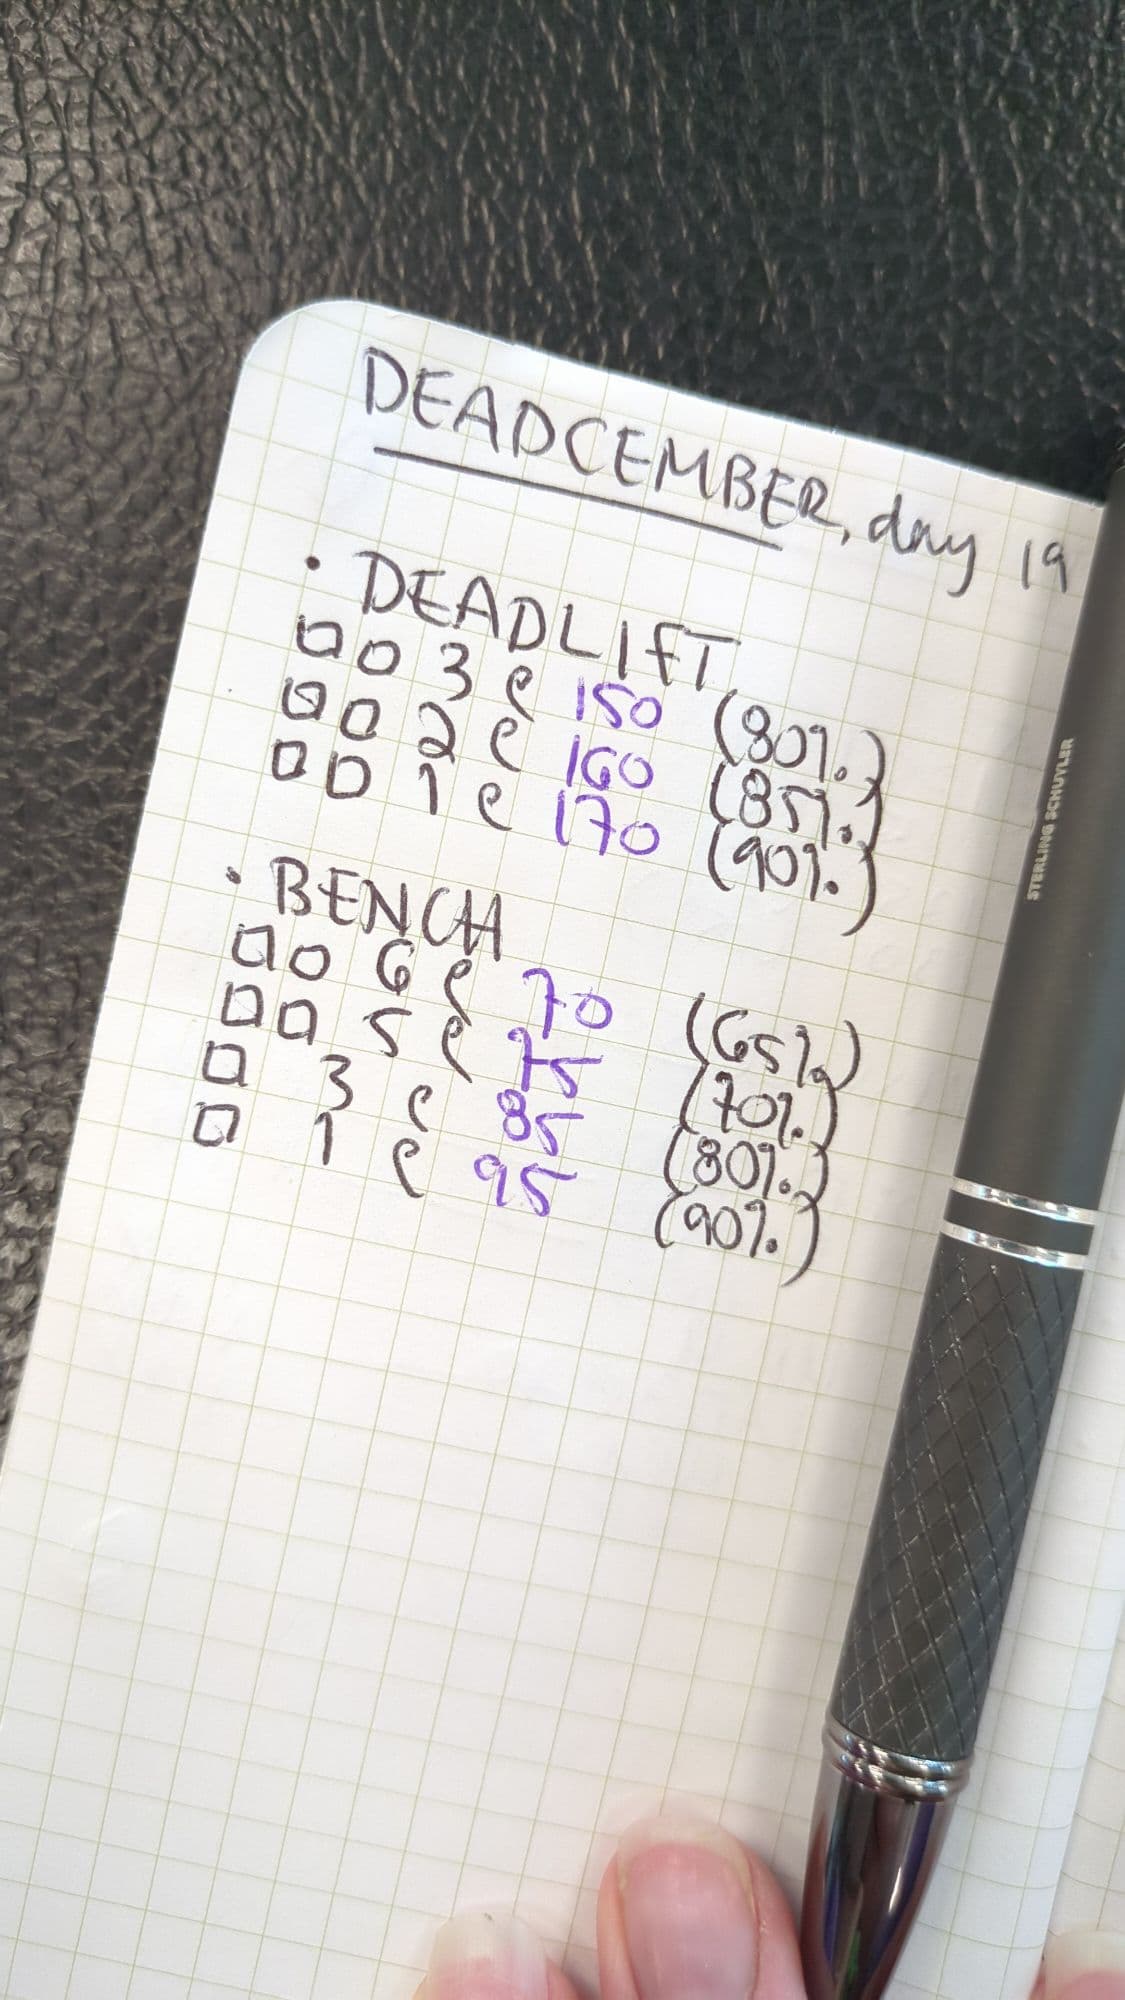 DEADCEMBER, day 19
• DEADLIFT
□ □ 3 @ 150 (80%)
□ □ 2 @ 160 (85%)
□ □ 1 @ 170 (90%)
• BENCH
□ □ 6 @ 70 (65%)
□ □ 5 @ 75 (70%)
□ 3 @ 85 (80%)
□ 1 @ 95 (90%)
STERLING SCHUYLER